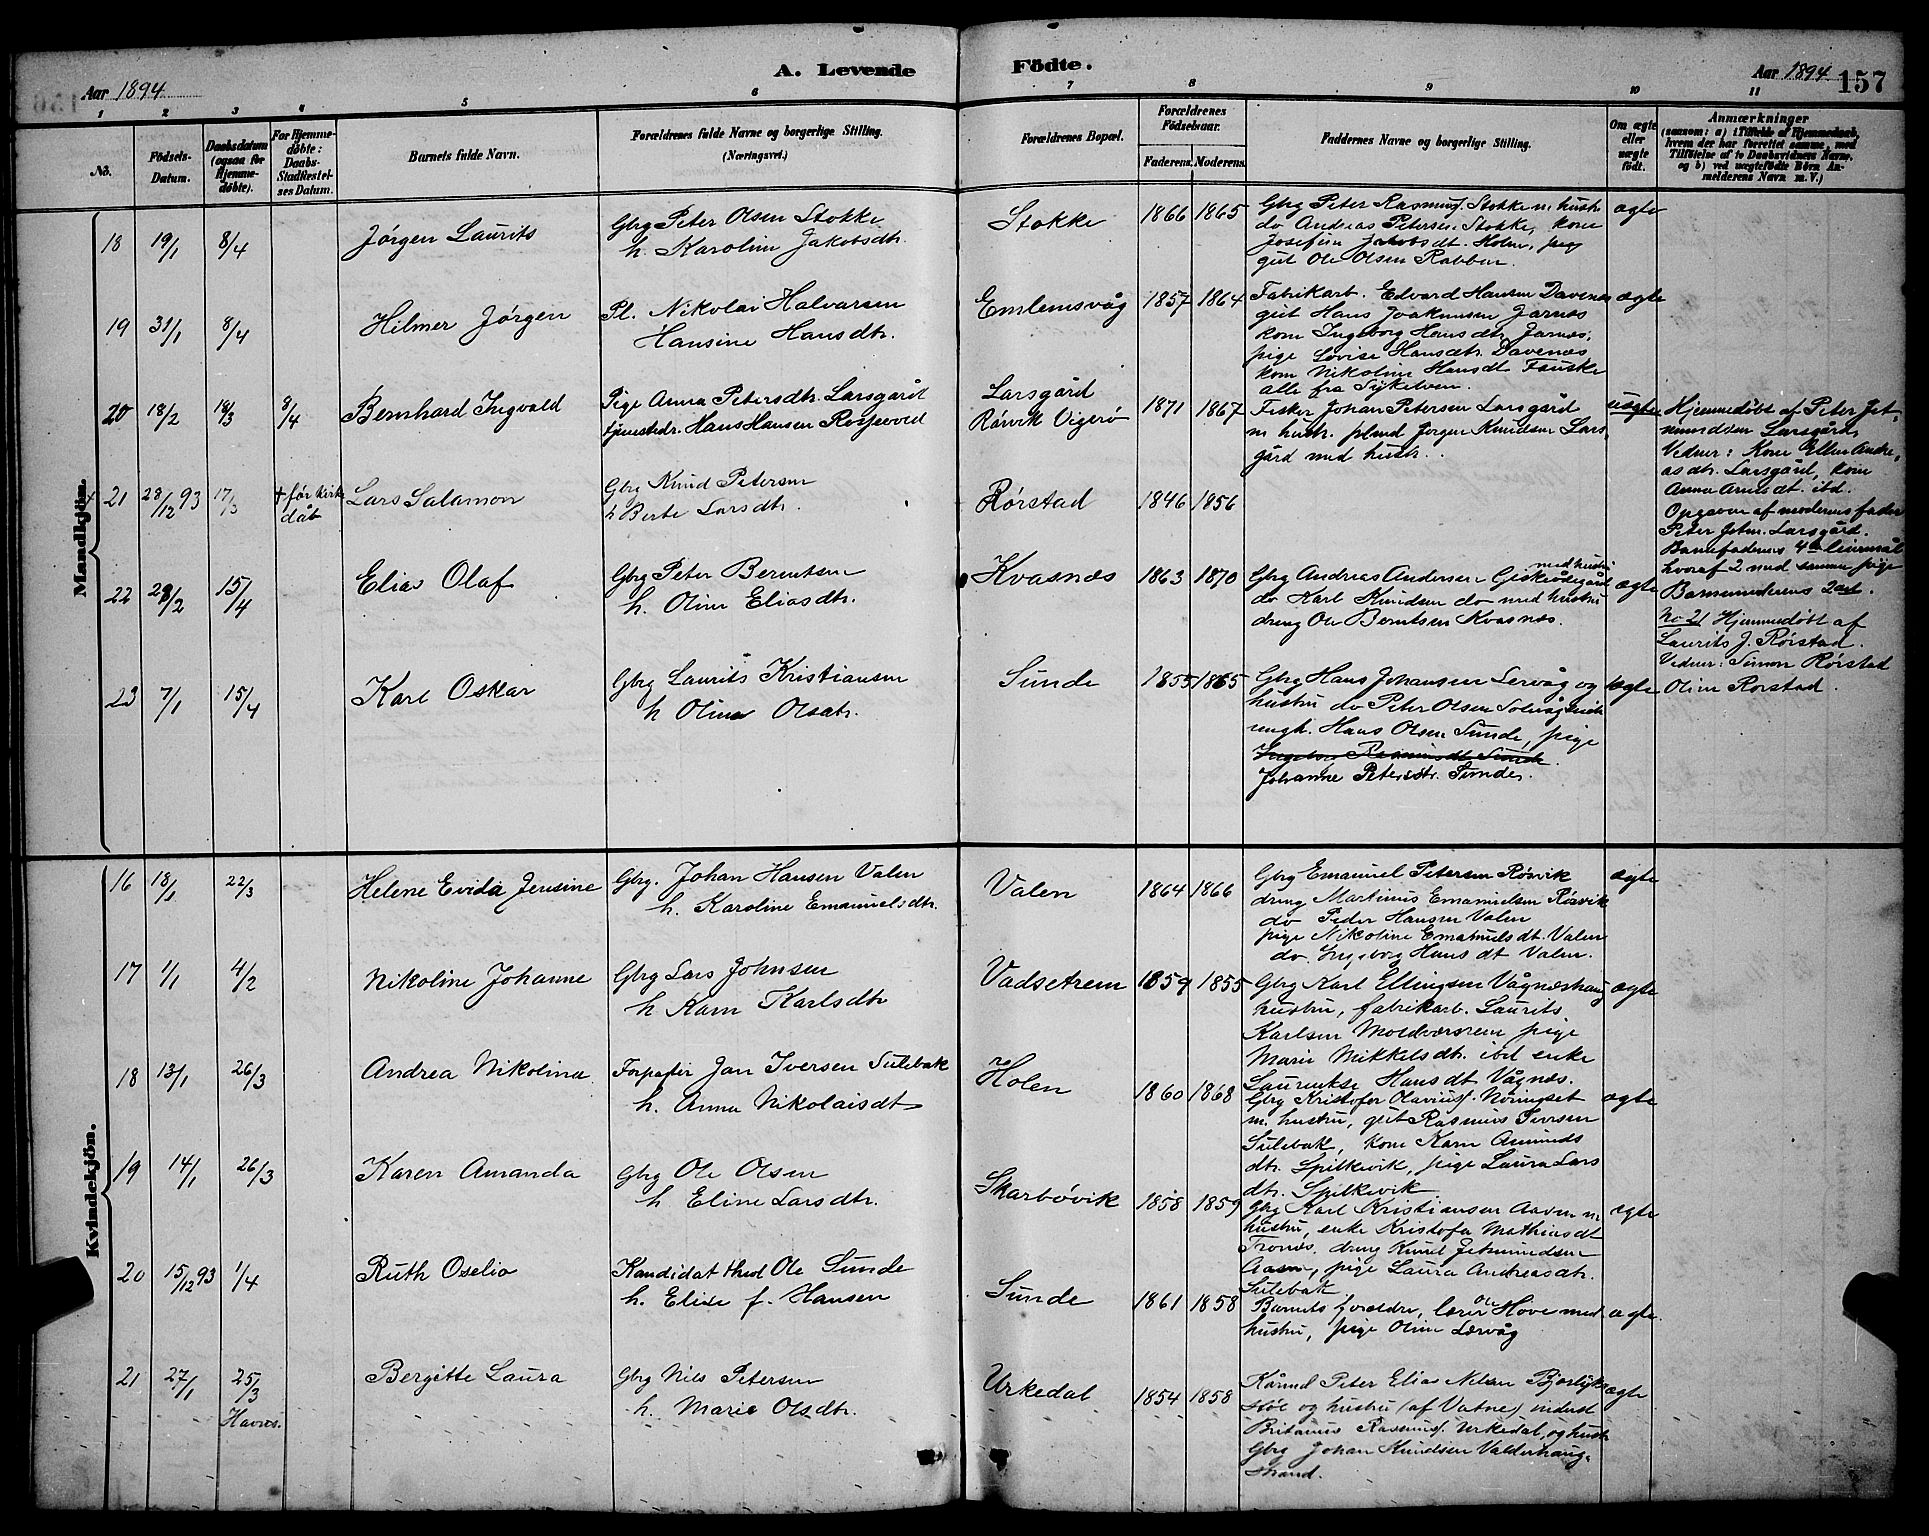 A. Levende Födte.
Aar 1894
Aar 1894
157
1 2 3 4 5 6 7 8 9 10 11
No.
Födsels-Datum.
Daabsdatum (ogsaa for Hjemmedöbte).
For Hjemmedöbte: Daabs-Stadfestelses Datum.
Barnets fulde Navn.
Forældrenes fulde Navne og borgerlige Stilling.
(Næringsvei.)
Forældrenes Bopæl.
Forældrenes Födselsaar.
Faderens. Moderens.
Faddernes Navne og borgerlige Stilling.
Om ægte eller uægte födt.
Anmærkninger
(saasom: a) i Tilfælde af Hjemmedaab, hvem der har forrettet samme, med Tilföielse af to Daabsvidners Navne, og b) ved uægtefödte Börn Anmelderens Navn m. V.)
Mandkjön.
18 19/1 8/4 Jørgen Laurits
Gbrg Peter Olsen Stokke
h. Karoline Jakobsdtr.
Stokke 1866 1865
Gbrg Peter Rasmus. Stokke m. hustr
do Andreas Petersen Stokke, kone
Josefine Jakobsdt. Holen, pige
gut Ole Olsen Rabben.
ægte
19 31/1 8/4 Hilmer Jørgen
Pl. Nikolai Halvarsen
Hansine Hansdtr.
Emlemsvåg 1857 1864
Fabrikarb. Edvard Hansen Davenes
gut Hans Joakimsen Jarnes
kone Ingeborg Hansdtr. Jarnes,
pige Lovise Hansdtr. Davenes
kone Nikoline Hansdt Fauske
alle fra Sykelven.
ægte
20 18/2 18/3 8/4 Bernhard Ingvald
Pige Anna Petersdtr. Larsgård
tjenestedr. Hans Hansen Rosjevold
Larsgård
Rørvik Vigerø
1871 1867
Fisker Johan Petersen Larsgård
m. hustr. plmd Jørgen Knudsen Lars
gård med hustr.
uægte
Hjemmedøbt af Peter Jet-
mundsen Larsgård,
Vidner: Kone Ellen Andre
asdtr. Larsgård, kone
Anna Arnesdt. ibd.
Opgaven af moderens fader
Peter Jetm. Larsgård.
Barnefaderens 4de leiermål
hvoraf 2 med samme pige
Barnemoderens 2det.
21 28/12 93 17/3 + før kirke
dåb
Lars Salamon
Gbrg Knud Petersen
h Berte Larsdtr.
Rørstad 1846 1856
No 21 Hjemmedøbt af
Laurits J. Rørstad.
Vidner: Simon Rørstad
Oline Rørstad.
22 28/2 15/4 Elias Olaf
Gbrg Peter Berentsen
h. Oline Eliasdtr.
Kvasnes 1863 1870
med hustr
Gbrg Andreas Andersen Giskeødegård
do Karl Knudsen do med hustru
dreng Ole Berntsen Kvasnes.
ægte
23 7/1 15/4 Karl Oskar
Gbrg Laurits Kristiansen
h Olina Olsdtr.
Sunde 1855 1865
Gbrg Hans Johansen Lervåg og
hustru do Peter Olsen Solevåg
ungk. Hans Olsen Sunde, pige
Johanne Petersdtr. Sunde.
ægte
Kvindekjön.
16 18/1 22/3 Helene Evida Jensine
Gbrg. Johan Hansen Valen
h. Karoline Emanuelsdtr.
Valen 1864 1866
Gbrg Emanuel Petersen Rösvik
dreng Martinus Emanuelsen Rösvik
do Peder Hansen Valen
pige Nikoline Emanuelsdt. Valen
do. Ingeborg Hansdt Valen.
ægte
17 1/1 4/2 Nikoline Johanne
Gbrg Lars Johnsen
h Karn Karlsdtr
Vadsetrem 1859 1855
Gbrg Karl Ellingsen Vågneshaug
hustru, fabrikarb. Laurits
Karlsen Moldværsrem pige
Marie Mikkelsdtr. ibd enke
Laurentse Hansdt Vågnes.
ægte
18 13/1 26/3 Andrea Nikolina
Forpagter Jan Iversen Sulebak
h. Anna Nikolaisdt
Holen 1860 1868
Gbrg Kristofer Olavius. Nöringset
m. hustru, gut Rasmus Iversen
Sulebak, kone Karn Amunds
dtr. Spilkevik, pige Laura Lars
dtr. Spilkevik.
ægte
19 14/1 26/3 Karen Amanda
Gbrg Ole Olsen
h Eline Larsdtr.
Skarbövik 1858 1859
Gbrg Karl Kristiansen Aasen m
hustru, enke Kristofa Mathiasdt
Trones, dreng Knud Jetmundsen
Aasen, pige Laura Andreasdtr.
Sulebak
ægte
20 15/12 93 1/4 Ruth Oselio
Kandidat theol Ole Sunde
h. Elise f. Hansen
Sunde 1861 1858
Barnets forældre, lærer Ole Hove med
hustru, pige Oline Lervåg
ægte.
21 27/1 25/3
Havnes.
Bergitte Laura
Gbrg Nils Petersen
h. Marie Olsdtr.
Urkedal 1854 1858
Kårmd Peter Elias Nilsen Bjørlyke
støl og hustru (af Vatne) inderst
Britanus Rasmus. Urkedal, og hustr
Gbrg Johan Knudsen Valderhaug-
strand.
ægte